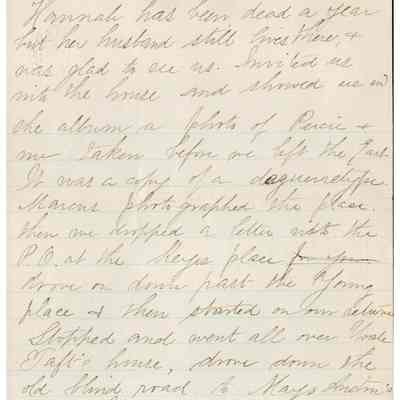 Hannah has been dead a year
but her husband still lives there, &
was glad to see us. Invited us
into the house and showed us in
the album a photo of Percie &
me taken before we left the East.
It was a copy of a daguerreotype.
Marcus photographed the place.
Then we dropped a letter into the
P.O. at the Keyes place
drove on down past the Young
place & then started on our return
Stopped and went all over Uncle
Taft's house, drove down the
old blind road to